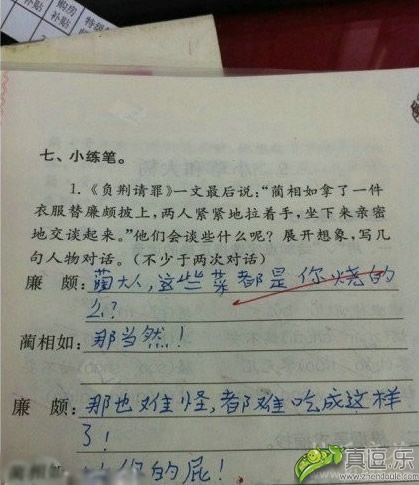 购房
补贴
补贴
特级
七、小练笔。
1.《负荆请罪》一文最后说:“蔺相如拿了一件
衣服替廉颇披上,两人紧紧地拉着手,坐下来亲密
地交谈起来。”他们会谈些什么呢?展开想象,写几
句人物对话。(不少于两次对话)
廉 颇:蔺大人,这些菜都是你烧的
么?
蔺相如:那当然!
廉 颇:那也难怪,都难吃成这样
了!
蔺相如:你的屁!
真逗乐
zhendoule.com